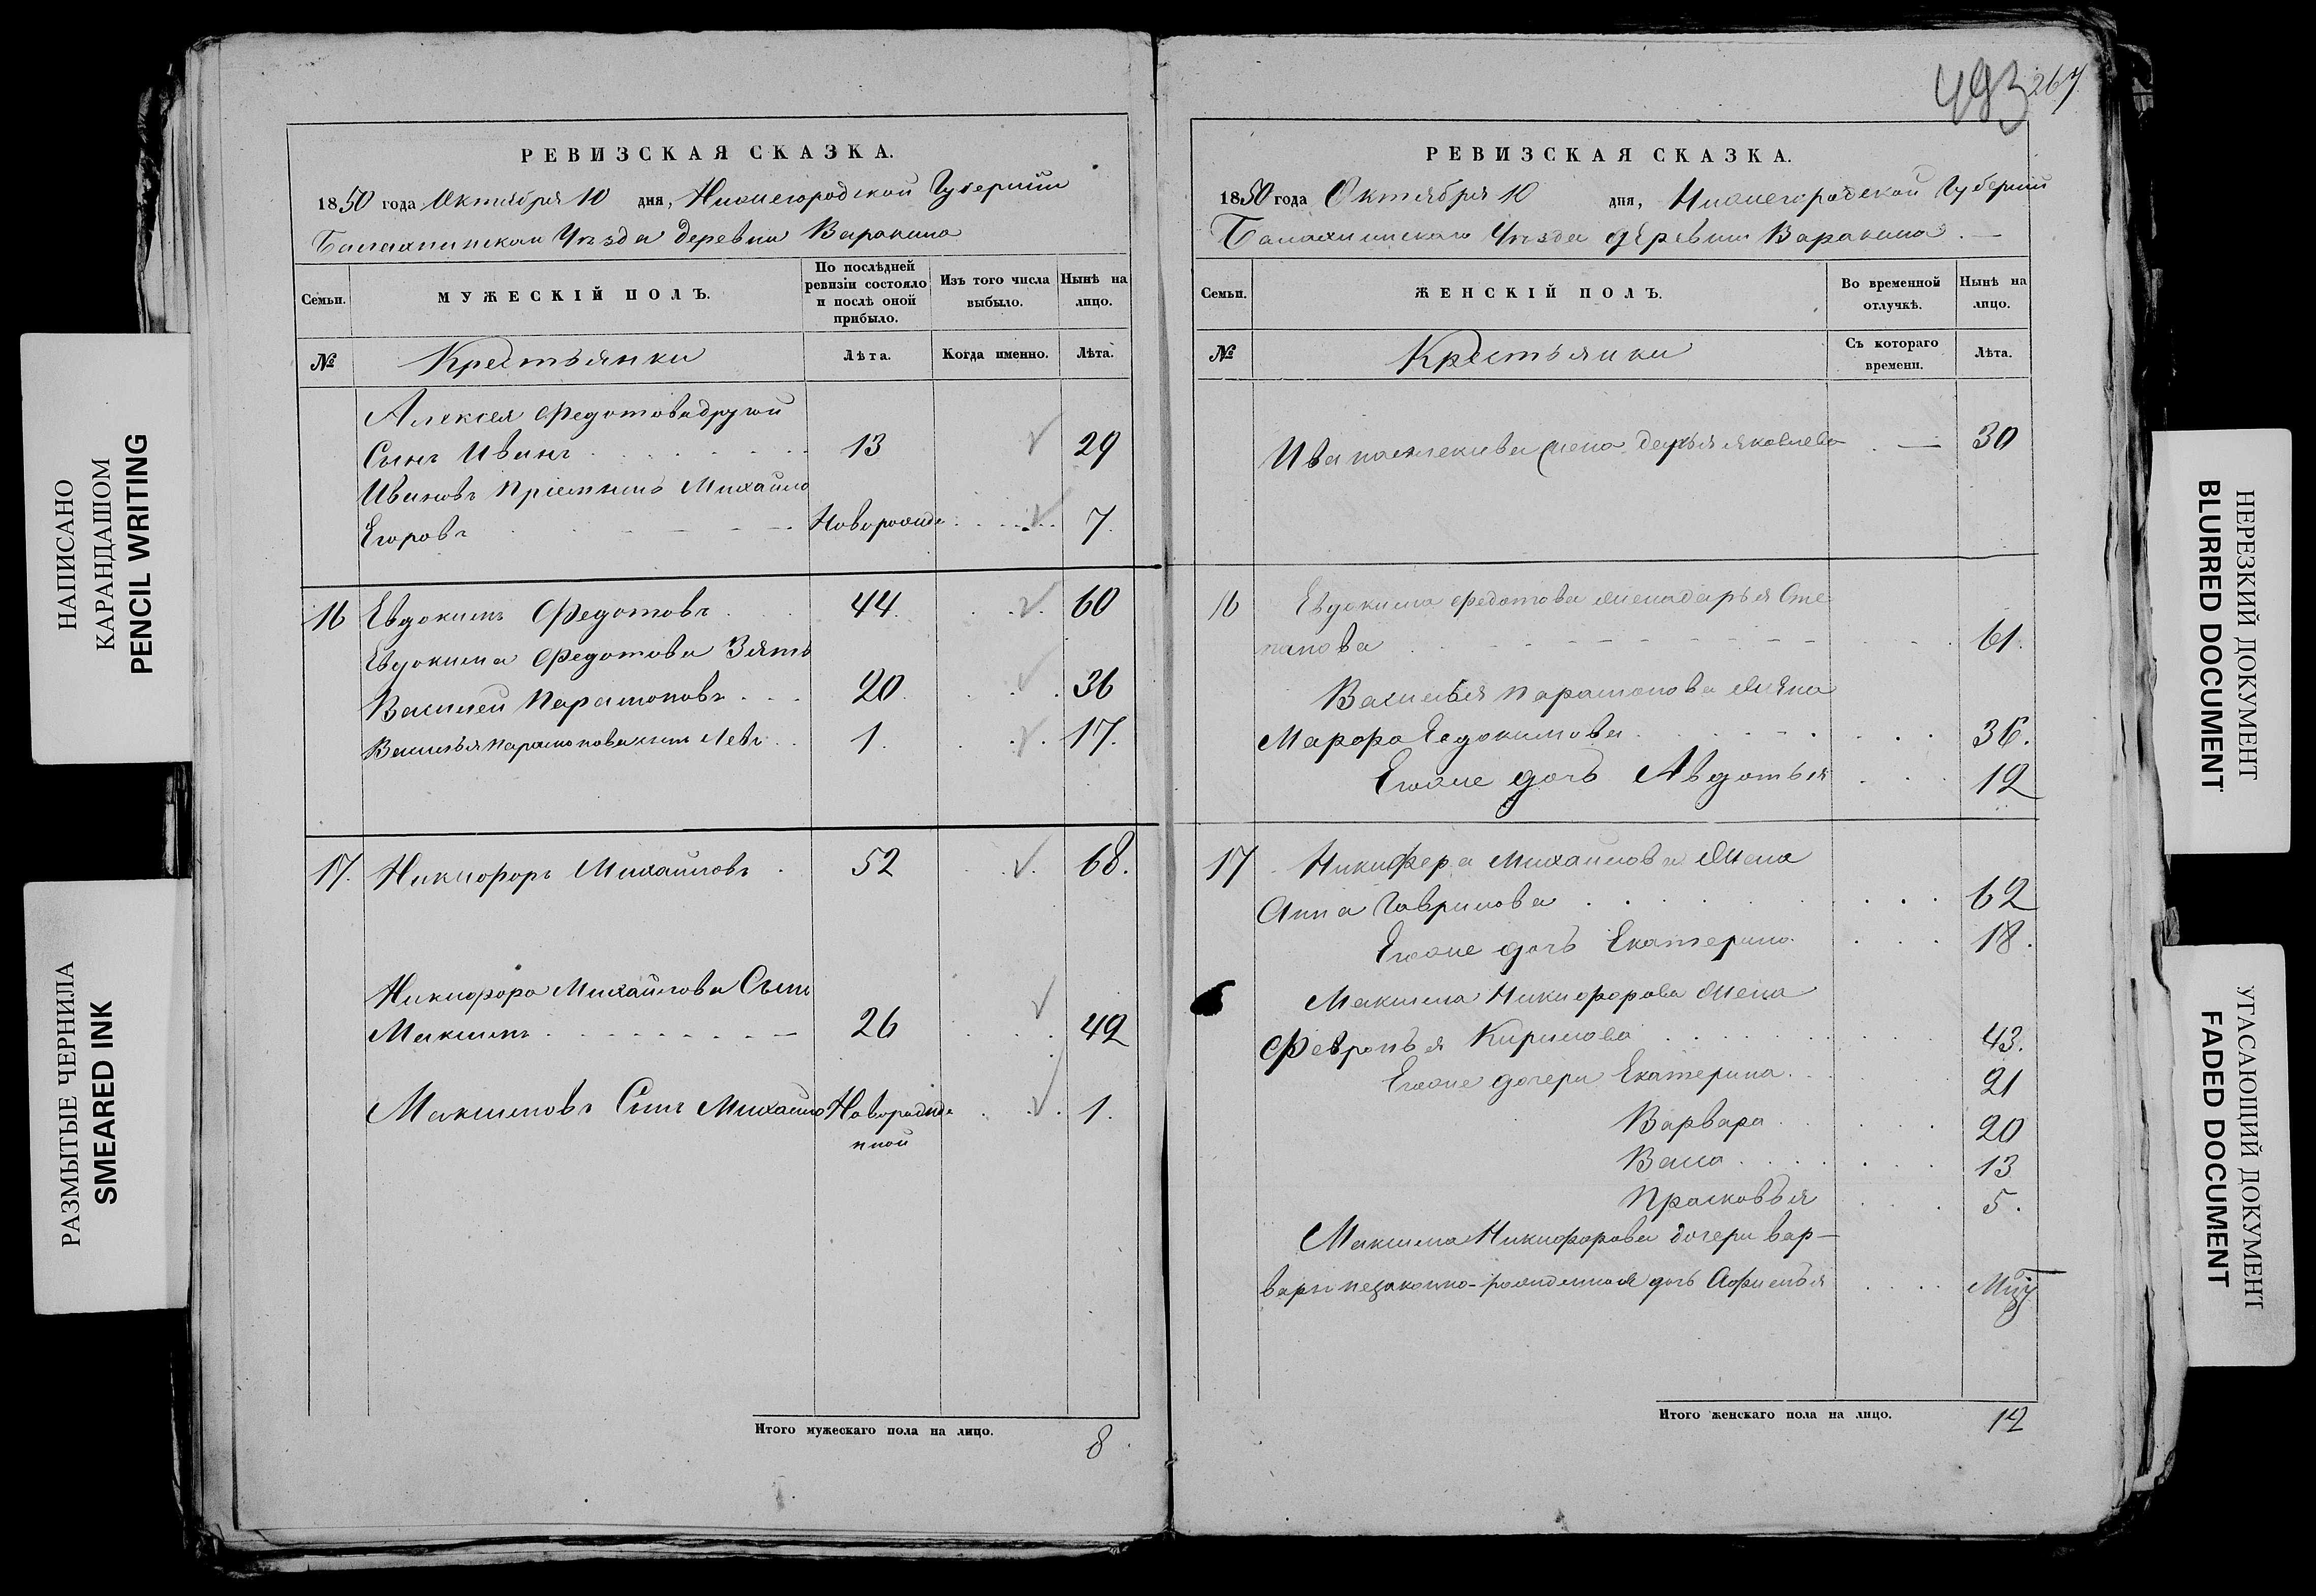 493 267
РЕВИЗСКАЯ СКАЗКА.
1850 года Октября 10 дня, Нижегородской Губернии
Балахнинскаго Уѣзда деревни Варакина
Семьи. МУЖЕСКІЙ ПОЛЪ. По послѣдней ревизіи состояло и послѣ оной прибыло. Изъ того числа выбыло. Нынѣ на лицо.
№ Крестьянки Лѣта. Когда именно. Лѣта.
Алексея Федотова другой
Сынъ Иванъ 13 29
Ивановъ Пріемышъ Михайло
Егоровъ Новорожде 7.
16 Евдокимъ Федотовъ 44. 60
Евдокима Федотова Зять
Василей Парамоновъ 20 36
Василья Парамонова сынъ Левъ 1. 17.
17. Никифоръ Михайловъ 52 68.
Никифора Михайлова Сынъ
Максимъ 26 42
Максимовъ Сынъ Михайло Новорожде 1.
нной
Итого мужескаго пола на лицо. 8
РЕВИЗСКАЯ СКАЗКА.
1850 года Октября 10 дня, Нижегородской Губернии
Балахнинскаго Уѣзда деревни Варакина
Семьи. ЖЕНСКІЙ ПОЛЪ. Во временной отлучкѣ. Нынѣ на лицо.
№ Крестьянки Съ котораго времени. Лѣта.
Ивана Алексива жена Дарья Яковлева — 30
16 Евдокима Федотова жена дарья Сте
панова 61.
Василья Парамонова жена
Марфа Евдокимова 36.
Ихже дочь Авдотья 12
17 Никифера Михаилова жена
Анна Гаврилова 62
Ихже дочь Екатерина 18.
Максима Никифорова жена
Февронья Кирилова 43.
Ихже дочери Екатерина 21
Варвара 20
Васса 13
Прасковья 5.
Максима Никифорова дочери Вар—
вары незаконно-рожденная дочь Афимья Мцу
Итого женскаго пола на лицо. 12
НАПИСАНО КАРАНДАШОМ
PENCIL WRITING
РАЗМЫТЫЕ ЧЕРНИЛА
SMEARED INK
НЕРЕЗКИЙ ДОКУМЕНТ
BLURRED DOCUMENT
УГАСАЮЩИЙ ДОКУМЕНТ
FADED DOCUMENT